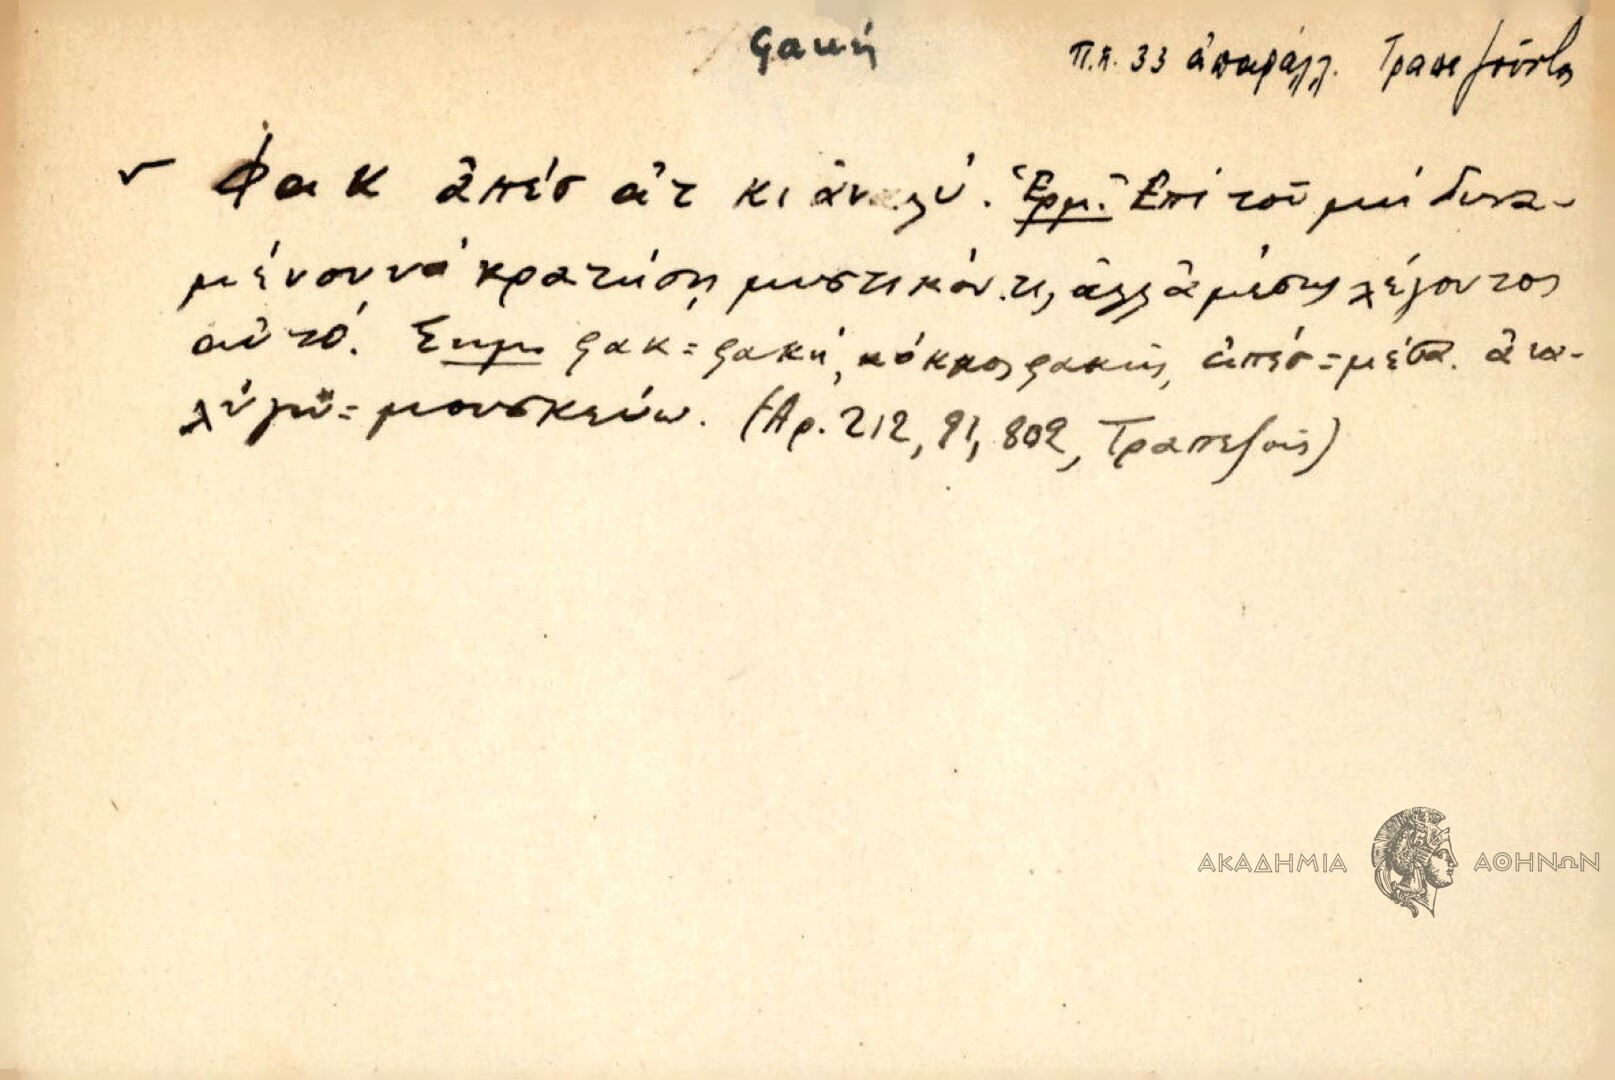 φακή
Π.π. 33 ἀπαράλλ. Τραπεζοῦντος
Φακ ἀπέσ ἀτ κι ἀναλύ. Ἑρμ. Ἐπὶ τοῦ μὴ δυνα-
μένου νὰ κρατήσῃ μυστικόν τι, ἀλλ' ἀμέσως λέγοντος
αὐτό. Σημ. φακ = φακή, κόκκος φακῆς, ἀπέσ = μέσα. ἀνα-
= μουσκεύω. (Ἀρ. 212, 91, 802, Τραπεζοῦς)
ΑΚΑΔΗΜΙΑ ΑΘΗΝΩΝ